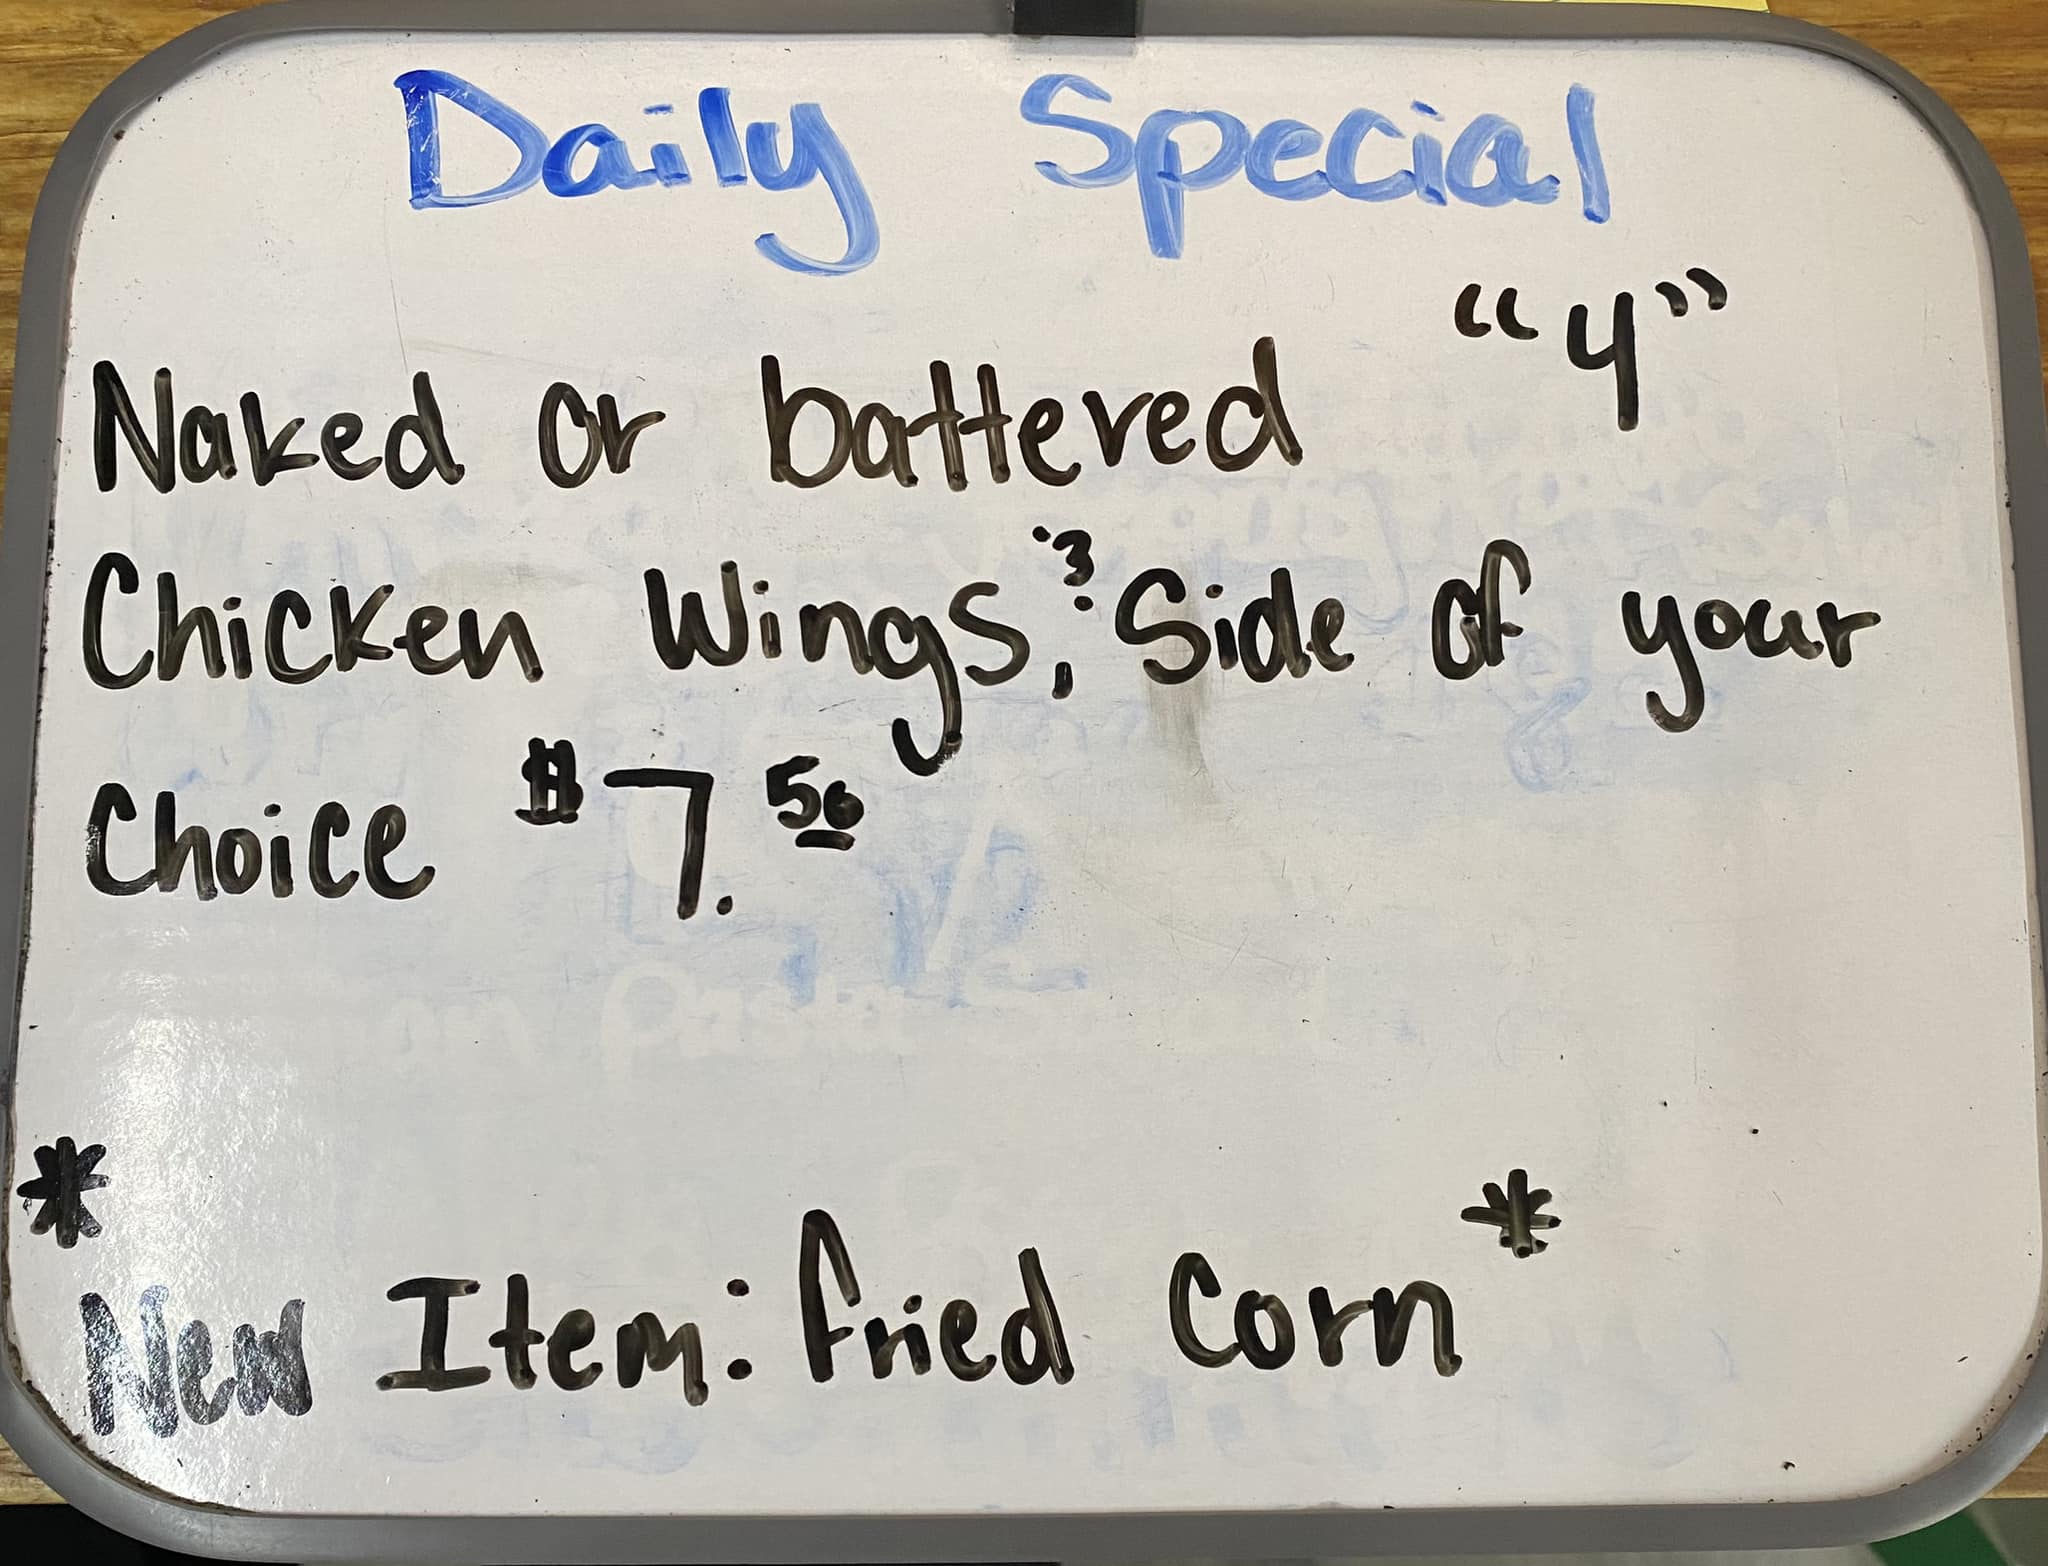 Daily Special
Naked or battered "4"
Chicken Wings, & Side of your
Choice $7.50
* New Item: fried Corn *